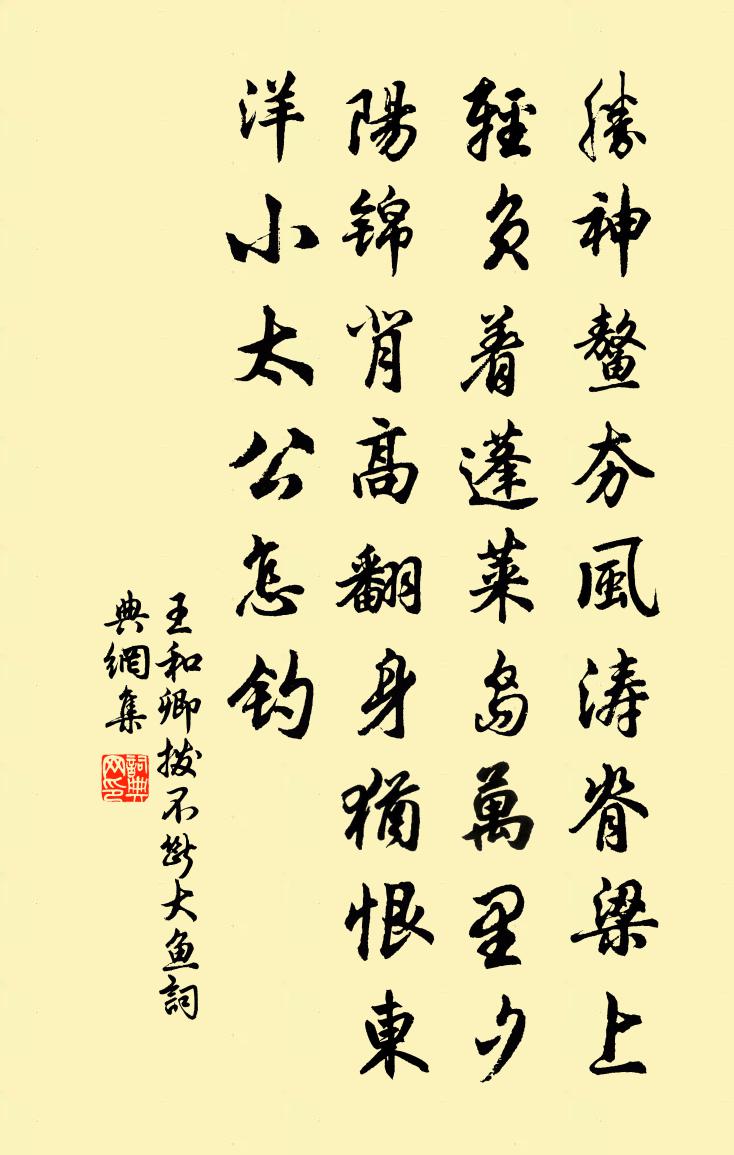 勝神鰲夯風涛脊梁上
輕負着蓬萊島萬里夕
陽錦背高翻身猶恨東
洋小太公怎釣
王和卿撥不斷大魚詞
典網集
詞典
网印